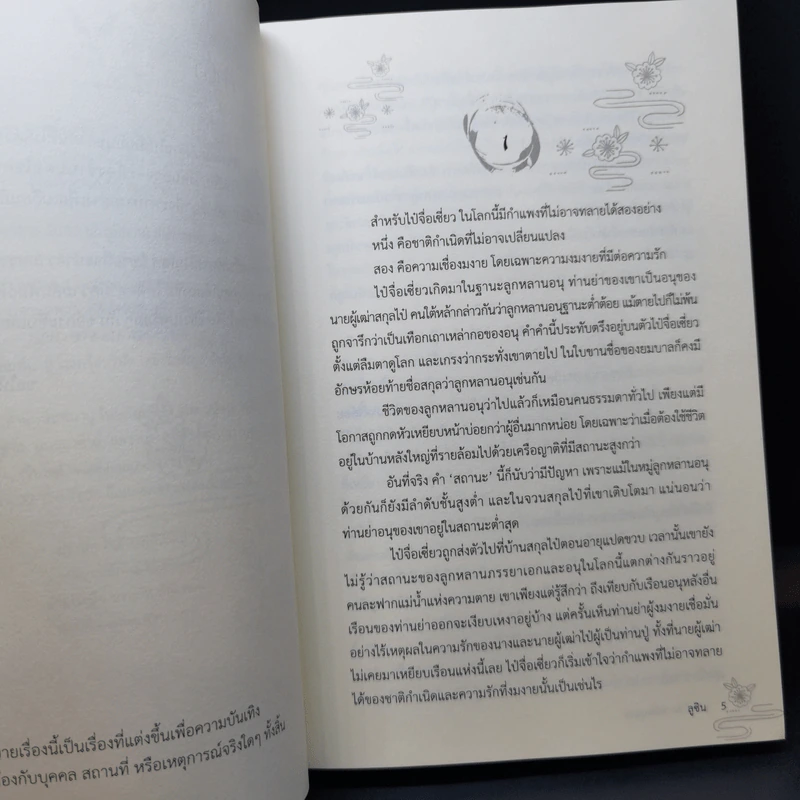 ายเรื่องนี้เป็นเรื่องที่แต่งขึ้นเพื่อความบันเทิง
องกับบุคคล สถานที่ หรือเหตุการณ์จริงใดๆ ทั้งสิ้น
1
สำหรับไป๋จื่อเซี่ยว ในโลกนี้มีกำแพงที่ไม่อาจทลายได้สองอย่าง
หนึ่ง คือชาติกำเนิดที่ไม่อาจเปลี่ยนแปลง
สอง คือความเชื่องมงาย โดยเฉพาะความงมงายที่มีต่อความรัก
ไป๋จื่อเซี่ยวเกิดมาในฐานะลูกหลานอนุ ท่านย่าของเขาเป็นอนุของ
นายผู้เฒ่าสกุลไป๋ คนใต้หล้ากล่าวกันว่าลูกหลานอนุฐานะต่ำต้อย แม้ตายไปก็ไม่พ้น
ถูกจารึกว่าเป็นเทือกเถาเหล่ากอของอนุ คำคำนี้ประทับตรึงอยู่บนตัวไป๋จื่อเซี่ยว
ตั้งแต่ลืมตาดูโลก และเกรงว่ากระทั่งเขาตายไป ในใบขานชื่อของยมบาลก็คงมี
อักษรห้อยท้ายชื่อสกุลว่าลูกหลานอนุเช่นกัน
ชีวิตของลูกหลานอนุว่าไปแล้วก็เหมือนคนธรรมดาทั่วไป เพียงแต่มี
โอกาสถูกกดหัวเหยียบหน้าบ่อยกว่าผู้อื่นมากหน่อย โดยเฉพาะว่าเมื่อต้องใช้ชีวิต
อยู่ในบ้านหลังใหญ่ที่รายล้อมไปด้วยเครือญาติที่มีสถานะสูงกว่า
อันที่จริง คำ ‘สถานะ’ นี้ก็นับว่ามีปัญหา เพราะแม้ในหมู่ลูกหลานอนุ
ด้วยกันก็ยังมีลำดับชั้นสูงต่ำ และในจวนสกุลไป๋ที่เขาเติบโตมา แน่นอนว่า
ท่านย่าอนุของเขาอยู่ในสถานะต่ำสุด
ไป๋จื่อเซี่ยวถูกส่งตัวไปที่บ้านสกุลไป๋ตอนอายุแปดขวบ เวลานั้นเขายัง
ไม่รู้ว่าสถานะของลูกหลานภรรยาเอกและอนุในโลกนี้แตกต่างกันราวอยู่
คนละฟากแม่น้ำแห่งความตาย เขาเพียงแต่รู้สึกว่า ถึงเทียบกับเรือนอนุหลังอื่น
เรือนของท่านย่าออกจะเงียบเหงาอยู่บ้าง แต่ครั้นเห็นท่านย่าผู้งมงายเชื่อมั่น
อย่างไร้เหตุผลในความรักของนางและนายผู้เฒ่าไป๋ผู้เป็นท่านปู่ ทั้งที่นายผู้เฒ่า
ไม่เคยมาเหยียบเรือนแห่งนี้เลย ไป๋จื่อเซี่ยวก็เริ่มเข้าใจว่ากำแพงที่ไม่อาจทลาย
ได้ของชาติกำเนิดและความรักที่งมงายนั้นเป็นเช่นไร
สูซิน 5